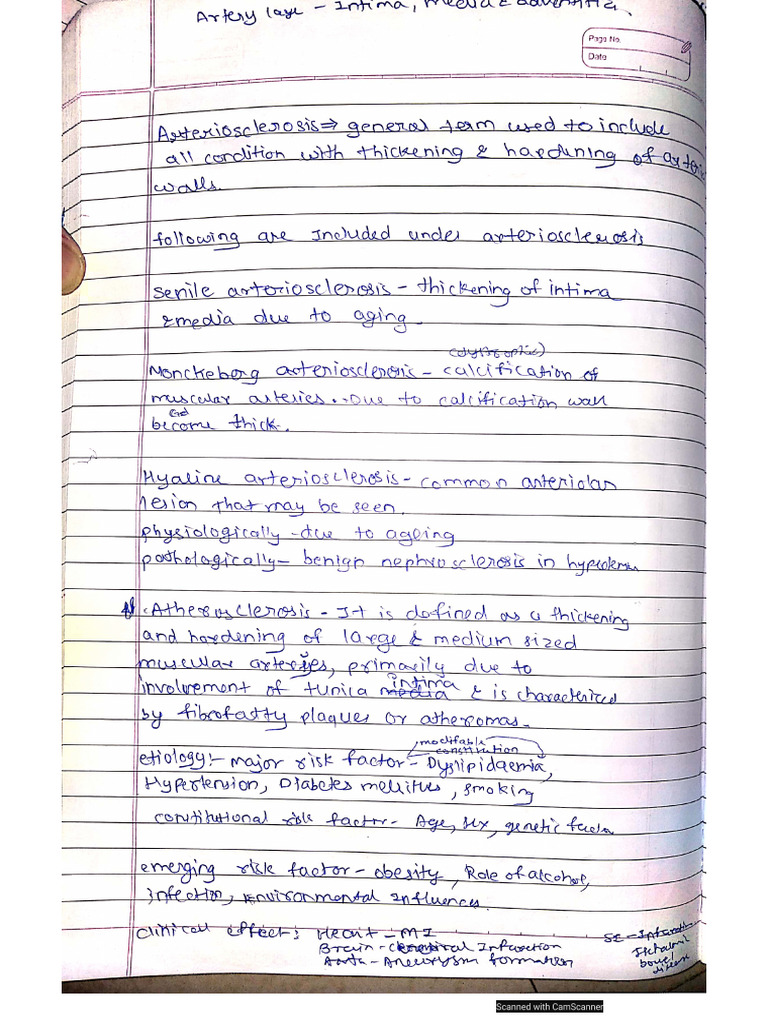 Artery laye - Intima, media & adventitia.
Page No.
Date
Arteriosclerosis ⇒ general term used to include
all condition with thickening & hardening of arteri
walls.
following are Included under arteriosclerosis
Senile arteriosclerosis - thickening of intima
& media due to aging.
(dystrophic)
Monckeberg arteriosclerosis - calcification of
muscular arteries. Due to calcification wall
become thick.
Hyaline arteriosclerosis - common arteriolar
lesion that may be seen.
physiologically - due to ageing
pathologically - benign nephrosclerosis in
Atherosclerosis - It is defined as a thickening
and hardening of large & medium sized
muscular arteries, primarily due to
intima
involvement of tunica media & is characterized
by fibrofatty plaques or atheromas.
modifable
constitution
etiology :- major risk factor - Dyslipidaemia,
Hypertension, Diabetes mellitus, smoking
constitutional risk factor - Age, sex, genetic factor
emerging risk factor - obesity, Role of alcohol,
infection, Environmental Influences.
Clinical effect: Heart - MI
Brain - Infarction
Aorta - Aneurysm formation
SI - Infarction
Ischemic
bowel
disease
Scanned with CamScanner